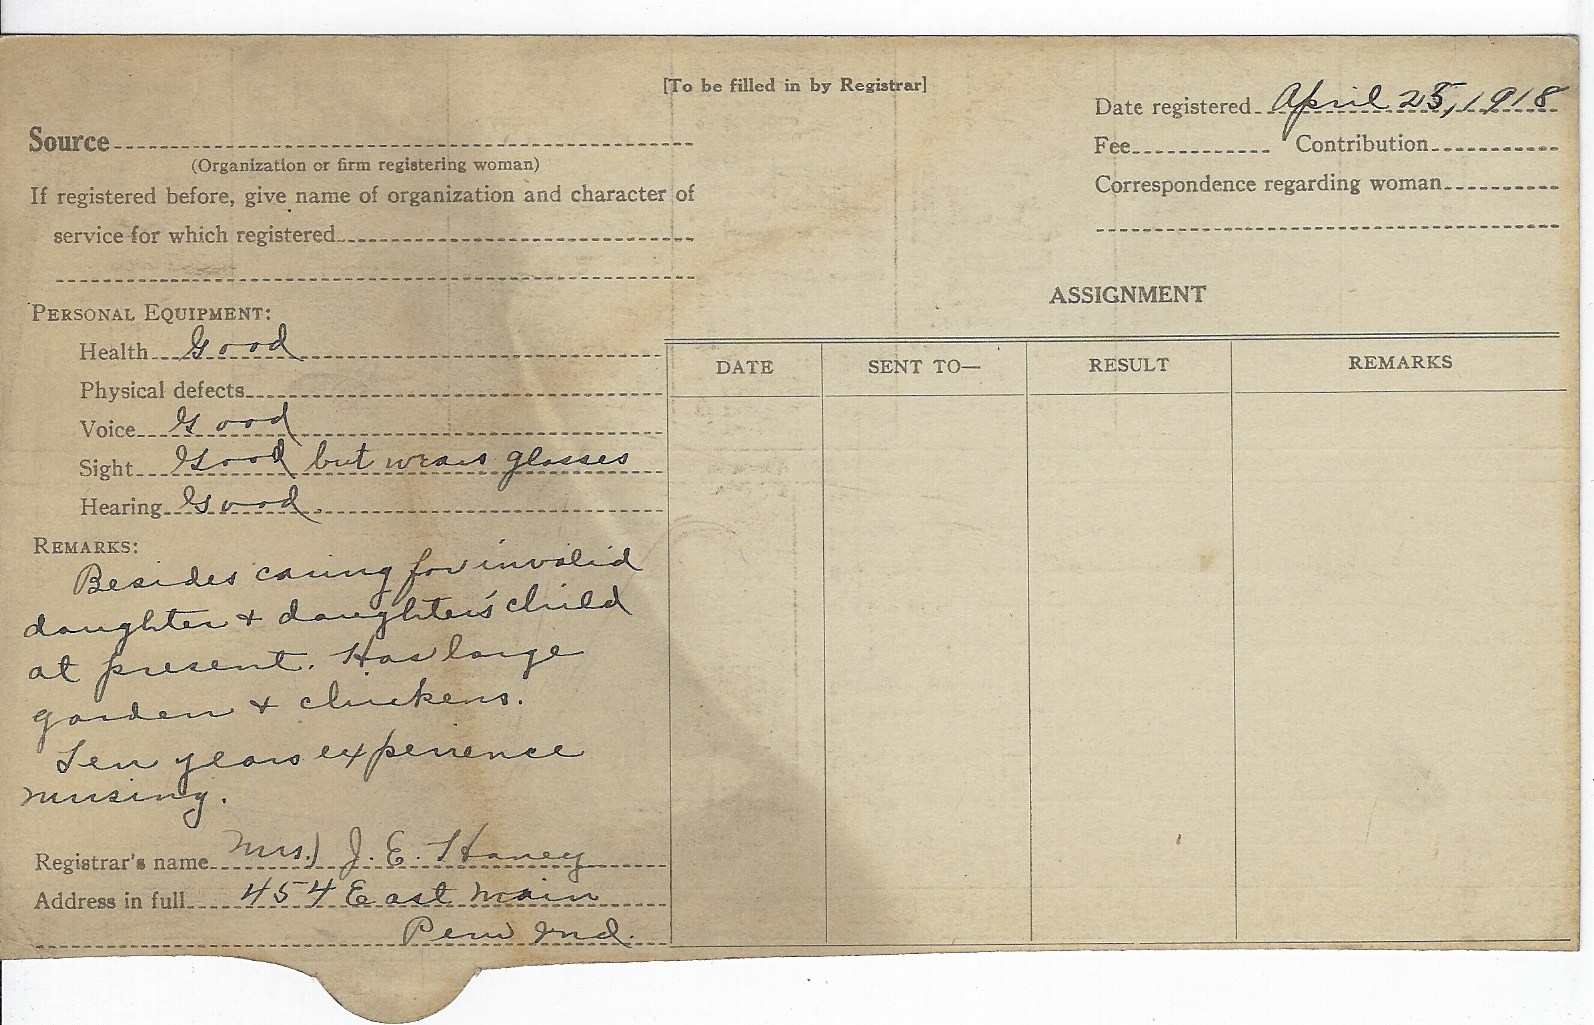 [To be filled in by Registrar]
Date registered April 25, 1918
Source
(Organization or firm registering woman)
Fee Contribution
If registered before, give name of organization and character of
service for which registered
Correspondence regarding woman
PERSONAL EQUIPMENT:
Health Good
Physical defects
Voice Good
Sight Good but wears glasses
Hearing Good.
REMARKS:
Besides caring for invalid
daughter & daughter's child
at present. Has large
garden & chickens.
Ten years experience
nursing.
Registrar's name Mrs.) J. E. Haney
Address in full 454 East Main
Peru Ind.
ASSIGNMENT
DATE SENT TO— RESULT REMARKS